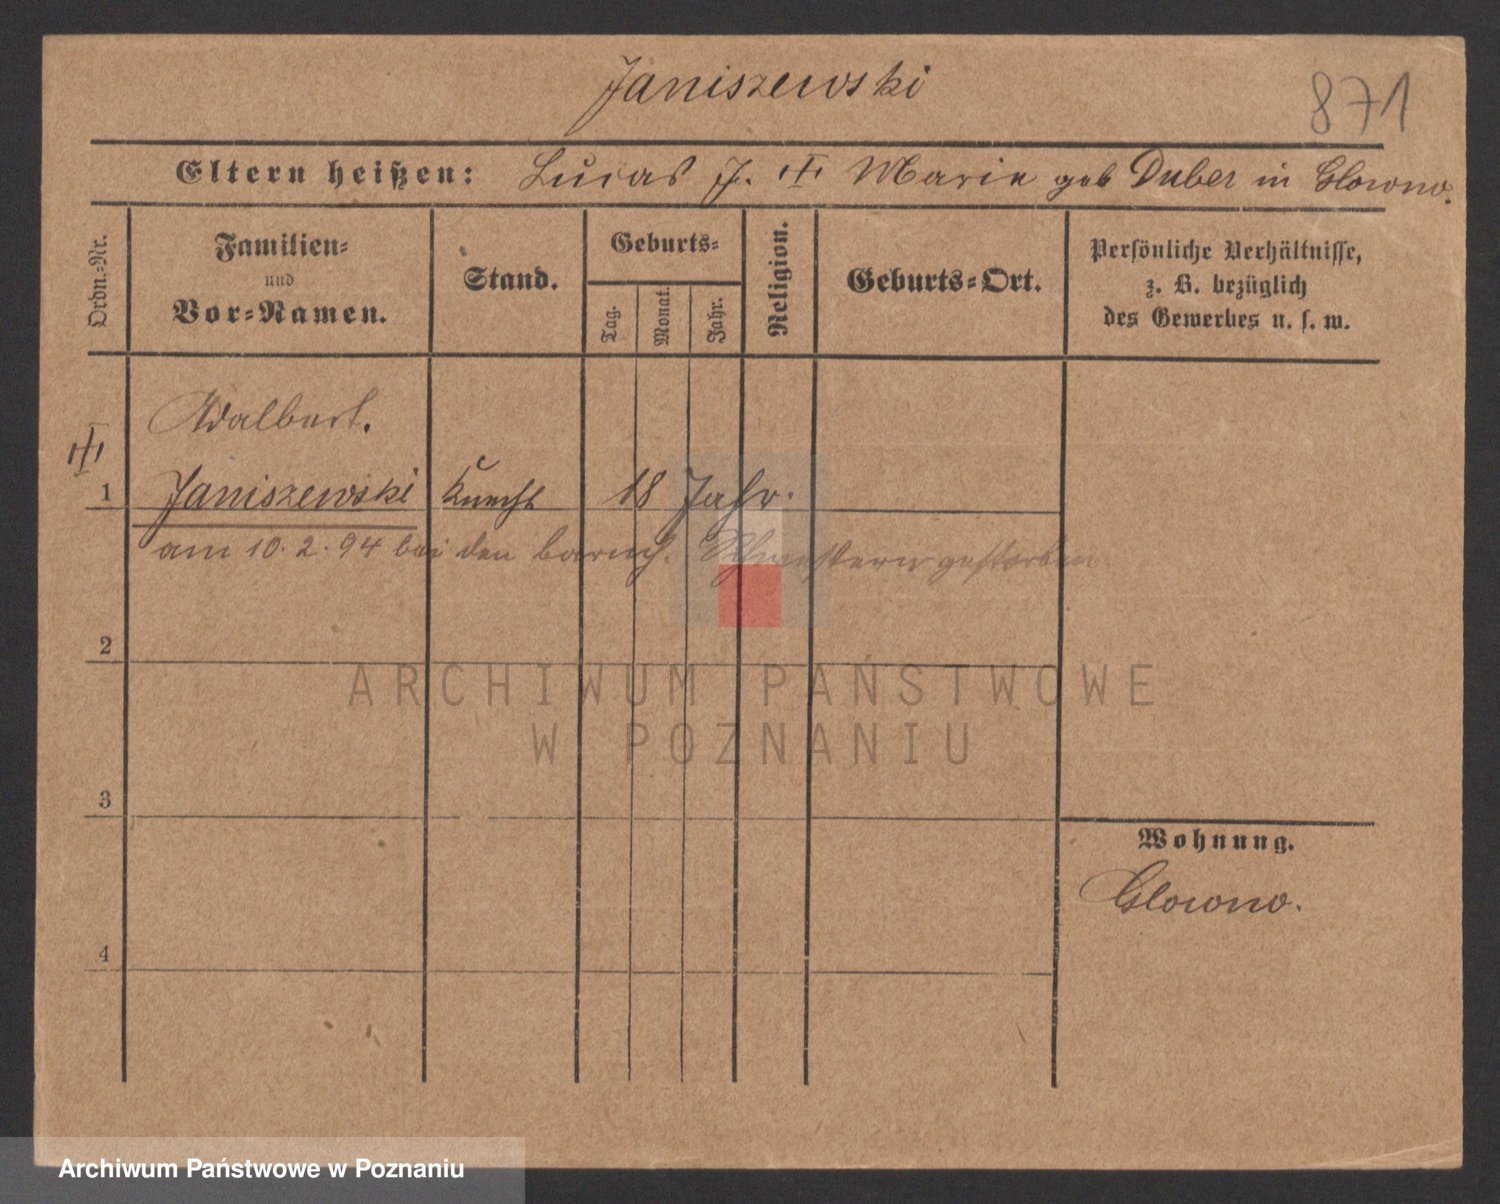 Janiszewski
871
Eltern heißen: Lucas J. ☩ Marie geb Duber in Glowno.
Ordn.-Nr.
Familien-
und
Vor-Namen.
Stand.
Geburts-
Tag.
Monat.
Jahr.
Religion.
Geburts-Ort.
Persönliche Verhältnisse,
z. B. bezüglich
des Gewerbes u. s. w.
Adalbert.
☩
1 Janiszewski Knecht 18 Jahr.
am 10. 2. 94 bei den barmh. Schwestern gestorben
2
3
4
Wohnung.
Glowno.
ARCHIWUM PAŃSTWOWE
W POZNANIU
Archiwum Państwowe w Poznaniu